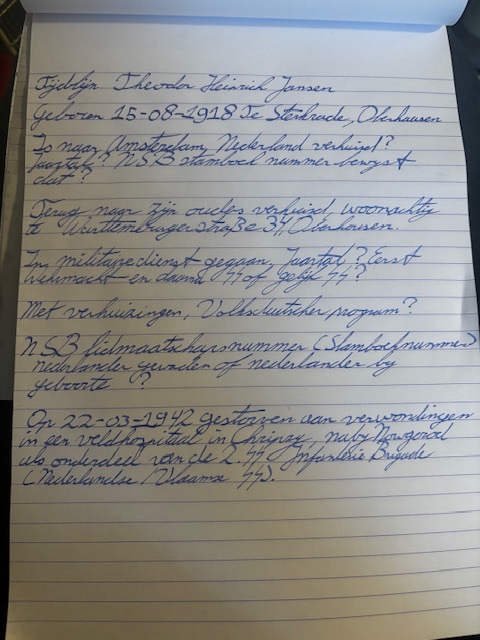 Tijdlijn Theodor Heinrich Jansen
Geboren 15-08-1918 Te Sterkrade, Oberhausen
Is naar Amsterdam, Nederland verhuisd?
Jaartal? NSB stamboek nummer bewijst
dat?
Terug naar zijn ouders verhuisd, woonachtig
te Württembergerstraße 34, Oberhausen.
In militaire dienst gegaan, Jaartal? Eerst
Wehrmacht en daarna SS of gelijk SS?
Met verhuizingen, Volksdeutscher program?
NSB lidmaatschapsnummer (Stamboeknummer)
nederlander geworden of nederlander by
geboorte ?
Op 22-03-1942 gestorven aan verwondingen
in een veldhospitaal in nabij Nowgorod
als onderdeel van de 2. SS Infanterie Brigade
(Nederlandse / Vlaamse SS).